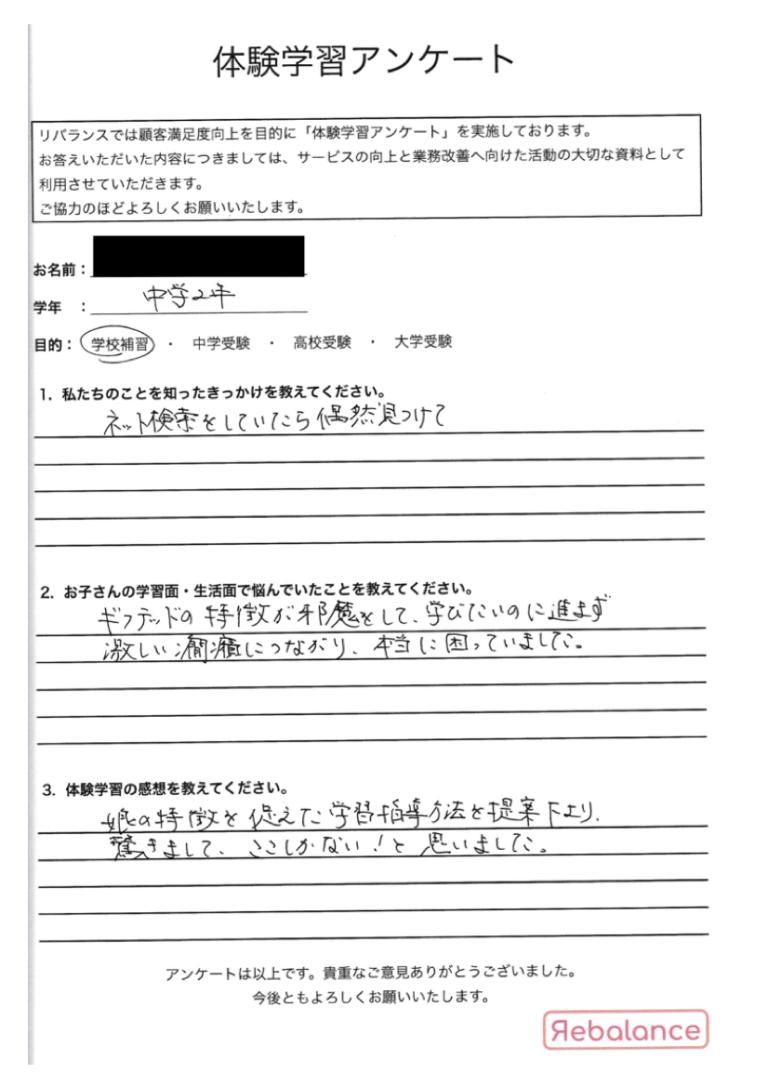 体験学習アンケート
リバランスでは顧客満足度向上を目的に「体験学習アンケート」を実施しております。
お答えいただいた内容につきましては、サービスの向上と業務改善へ向けた活動の大切な資料として
利用させていただきます。
ご協力のほどよろしくお願いいたします。
お名前：
学年　：中学2年
目的：学校補習　・　中学受験　・　高校受験　・　大学受験
1. 私たちのことを知ったきっかけを教えてください。
ネット検索をしていたら偶然見つけて
2. お子さんの学習面・生活面で悩んでいたことを教えてください。
ギフテッドの特徴が邪魔をして、学びたいのに進まず
激しい癇癪につながり、本当に困っていました。
3. 体験学習の感想を教えてください。
娘の特徴を捉えた学習指導方法を提案下より、
驚きまして、ここしかない！と思いました。
アンケートは以上です。貴重なご意見ありがとうございました。
今後ともよろしくお願いいたします。
Rebalance